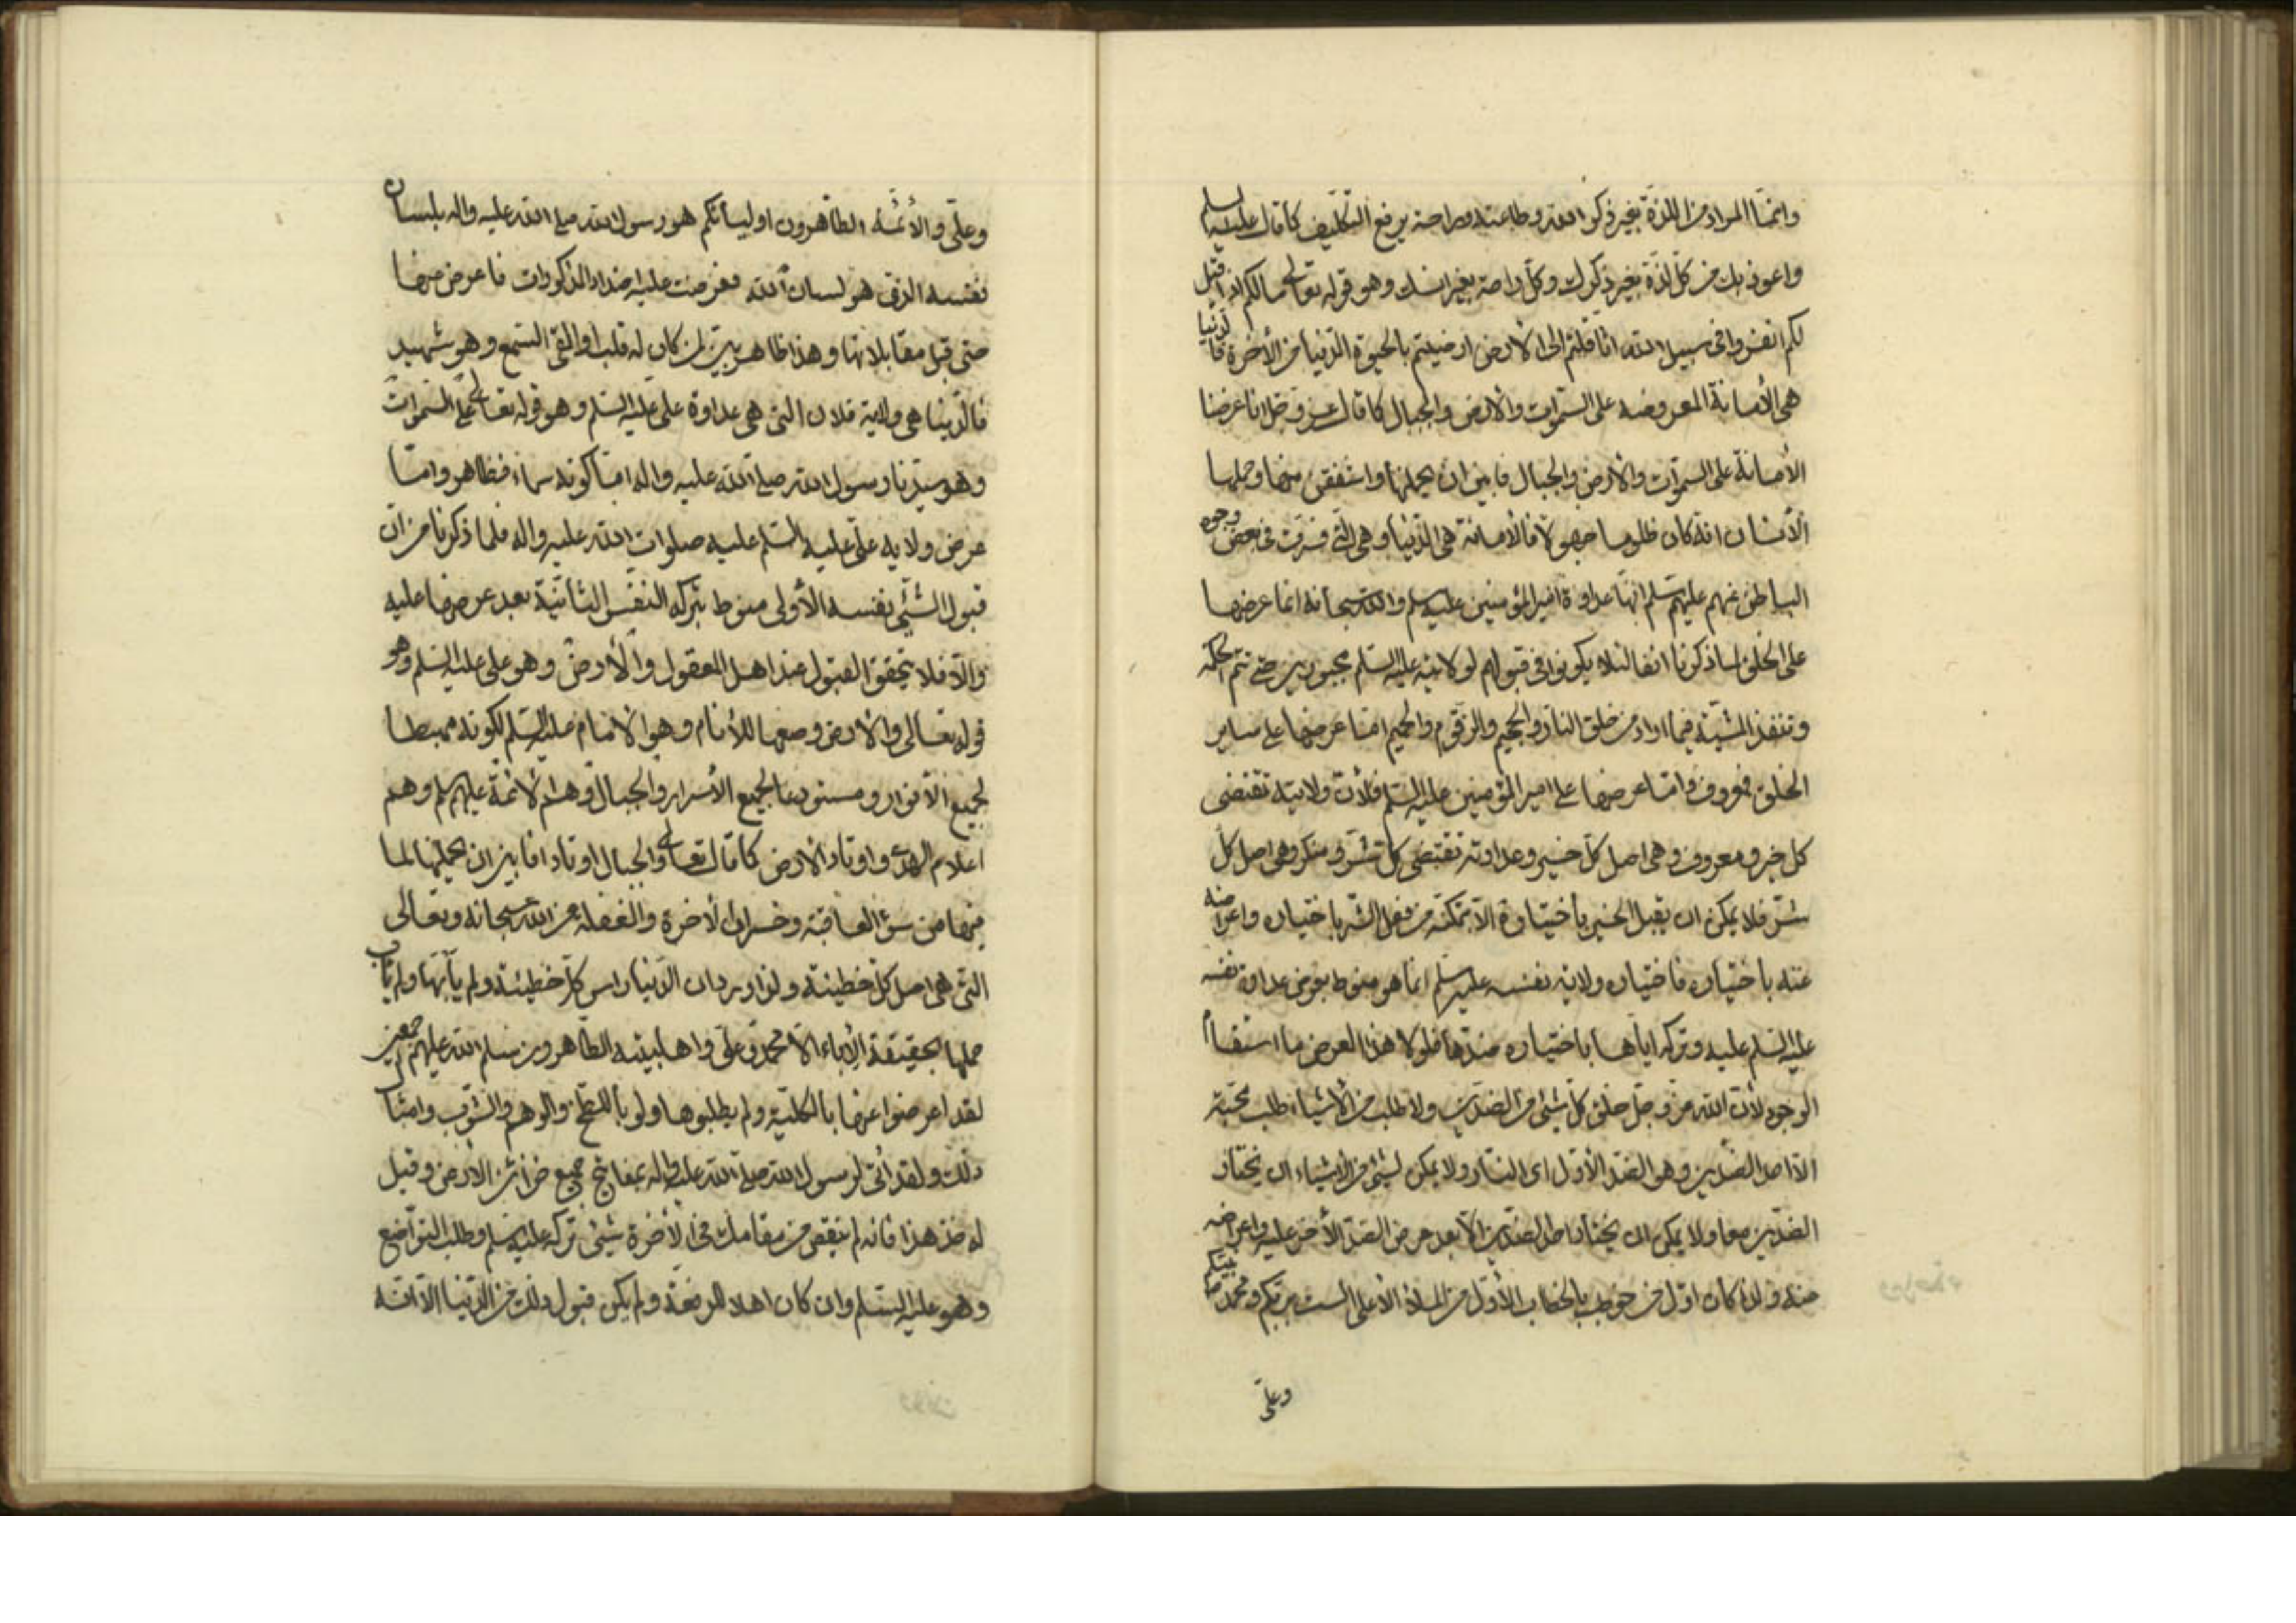 وانما المراد من اللذة بغير ذكر الله وطاعته وراحة يرفع التكليف كما قال عليه السلم
واعوذ بك من كل لذة بغير ذكرك وكل راحة بغير انسك وهو قوله تعالى مالكم اذا قيل
لكم انفروا فى سبيل الله اثاقلتم الى الارض ارضيتم بالحيوة الدنيا من الأخرة فالدنيا
هى الأمانة المعروضه على السموات والارض والجبال كما قال عز وجل انا عرضنا
الأمانة على السموات والارض والجبال فابين ان يحملنها واشفقن منها وحملها
الأنسان انه كان ظلوما جهولا فالأمانة هى الدنيا وهى التى فسرت فى بعض وجوه
الباطن عنهم عليهم سلم انها عداوة امير المؤمنين عليه سلم والله سبحانه انما عرضها
على الخلق لما ذكرنا انفا لئلا يكونوا فى قبولهم لولايته عليه السلم مجبورين حتى تتم الحكمة
وتنفذ المشية فيما اراد من خلق النار والجحيم والزقوم والحميم اما عرضها على ساير
الخلق فمعروف واما عرضها على امير المؤمنين عليه السلم فلأن ولايته تقتضى
كل خير ومعروف وهى اصل كل خير وعداوته تقتضى كل شر ومنكر وهى اصل كل
شر فلا يمكن ان يقبل الخير باختياره الا بتمكنه من فعل الشر باختياره واعراضه
عنه باختياره فاختياره ولاية نفسه عليه سلم انما هو منوط بعرض عداوة نفسه
عليه السلم عليه وتركه اياها باختياره منذها فلولا هذا العرض ما استقام
الوجود لأن الله عز وجل خلق كل شئ من الضدين ولا طلب من الأشياء طلب محبة
الا احد الضدين وهو الضد الأول اى النار ولا يمكن لشئ من الاشياء ان يختار
الضدين معا ولا يمكن ان يختار احد الضدين الا بعد عرض الضد الأخر عليه واعراضه
عنه ولذا كان اول من خوطب بالخطاب الأول من الملاء الأعلى الست بربكم ومحمد نبيكم
وعلى
وعلى والأئمة الطاهرون اوليائكم هو رسول الله صلى الله عليه واله بلسان
نفسه الذى هو لسان الله فعرضت عليه اضداد المذكورات فاعرض عنها
حتى قبل مقابلاتها وهذا ظاهر بين لمن كان له قلب او القى السمع وهو شهيد
فالدنيا هى ولاية فلان التى هى عداوة على عليه السلم وهو قوله تعالى على السموات
وهو سيدنا رسول الله صلى الله عليه واله اما كونه سماء فظاهر واما
عرض ولايه على عليه السلم عليه صلوات الله عليه واله فلما ذكرنا من ان
قبول الشئ نفسه الأولى منوط بتركه النفس الثانية بعد عرضها عليه
والا فلا يتحقق القبول عند اهل العقول والأرض وهو على عليه السلم وهو
قوله تعالى والارض وضعها للأنام وهو الامام عليه السلم لكونه مهبطا
لجميع الأنوار ومستودعا لجميع الأسرار والجبال وهم الأئمة عليهم سلم وهم
اعلام الهدى واوتاد الارض كما قال تعالى والجبال اوتادا فابين ان يحملنها لما
فيها من سؤ العاقبة وخسران الاخرة والغفلة عن الله سبحانه وتعالى
التى هى اصل كل خطيئة ولذا ورد ان الدنيا راس كل خطيئة ولم يأبها ولم يأب
حملها بحقيقة الأباء الا محمد وعلى واهلبيته الطاهرون سلم الله عليهم اجمعين
لقد اعرضوا عنها بالكلية ولم يطلبوها ولو بالسنح والوهم والشوب وامثال
ذلك ولقد أتى لرسول الله صلى الله عليه واله بمفاتيح جميع خزائن الارض وقيل
له خذ هذا فانه لم ينقص من مقامك فى الأخرة شئ تركه عليه سلم وطلب التواضع
وهو عليه السلم وان كان اهلا للرفعة ولم يكن قبول ذلك من الدنيا الا انه